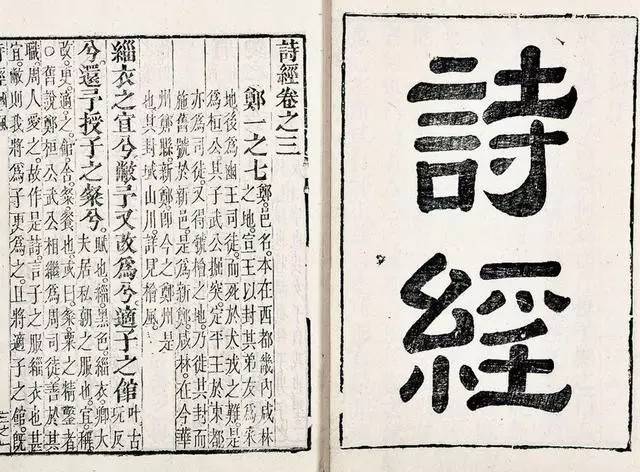 詩
經
詩經卷之三
鄭一之七
鄭。邑名。本在西都畿內咸林
之地。宣王以封其弟友爲采
地。後爲幽王司徒。而死於犬戎之難。是
爲桓公。其子武公掘突定平王於東都
亦爲司徒。又得虢檜之地。乃徙其封而
施舊號於新邑。是爲新鄭。咸林。在今華
州鄭縣。新鄭。即今之鄭州。是
也。其封域山川。詳見檜風。
緇衣之宜兮。敝予又改爲兮。適子之館
叶古
玩反
兮。還予授子之粲兮。
賦也。緇。黑色。緇衣。卿大
夫居私朝之服也。宜。稱
改。更。適。之。館。舍。粲。餐也。或曰。粲。粟之精鑿者
○舊說鄭桓公武公相繼爲周司徒。善於其
職。周人愛之。故作是詩。言子之服緇衣也甚
宜。敝則我將爲子更爲之。且將適子之館。旣